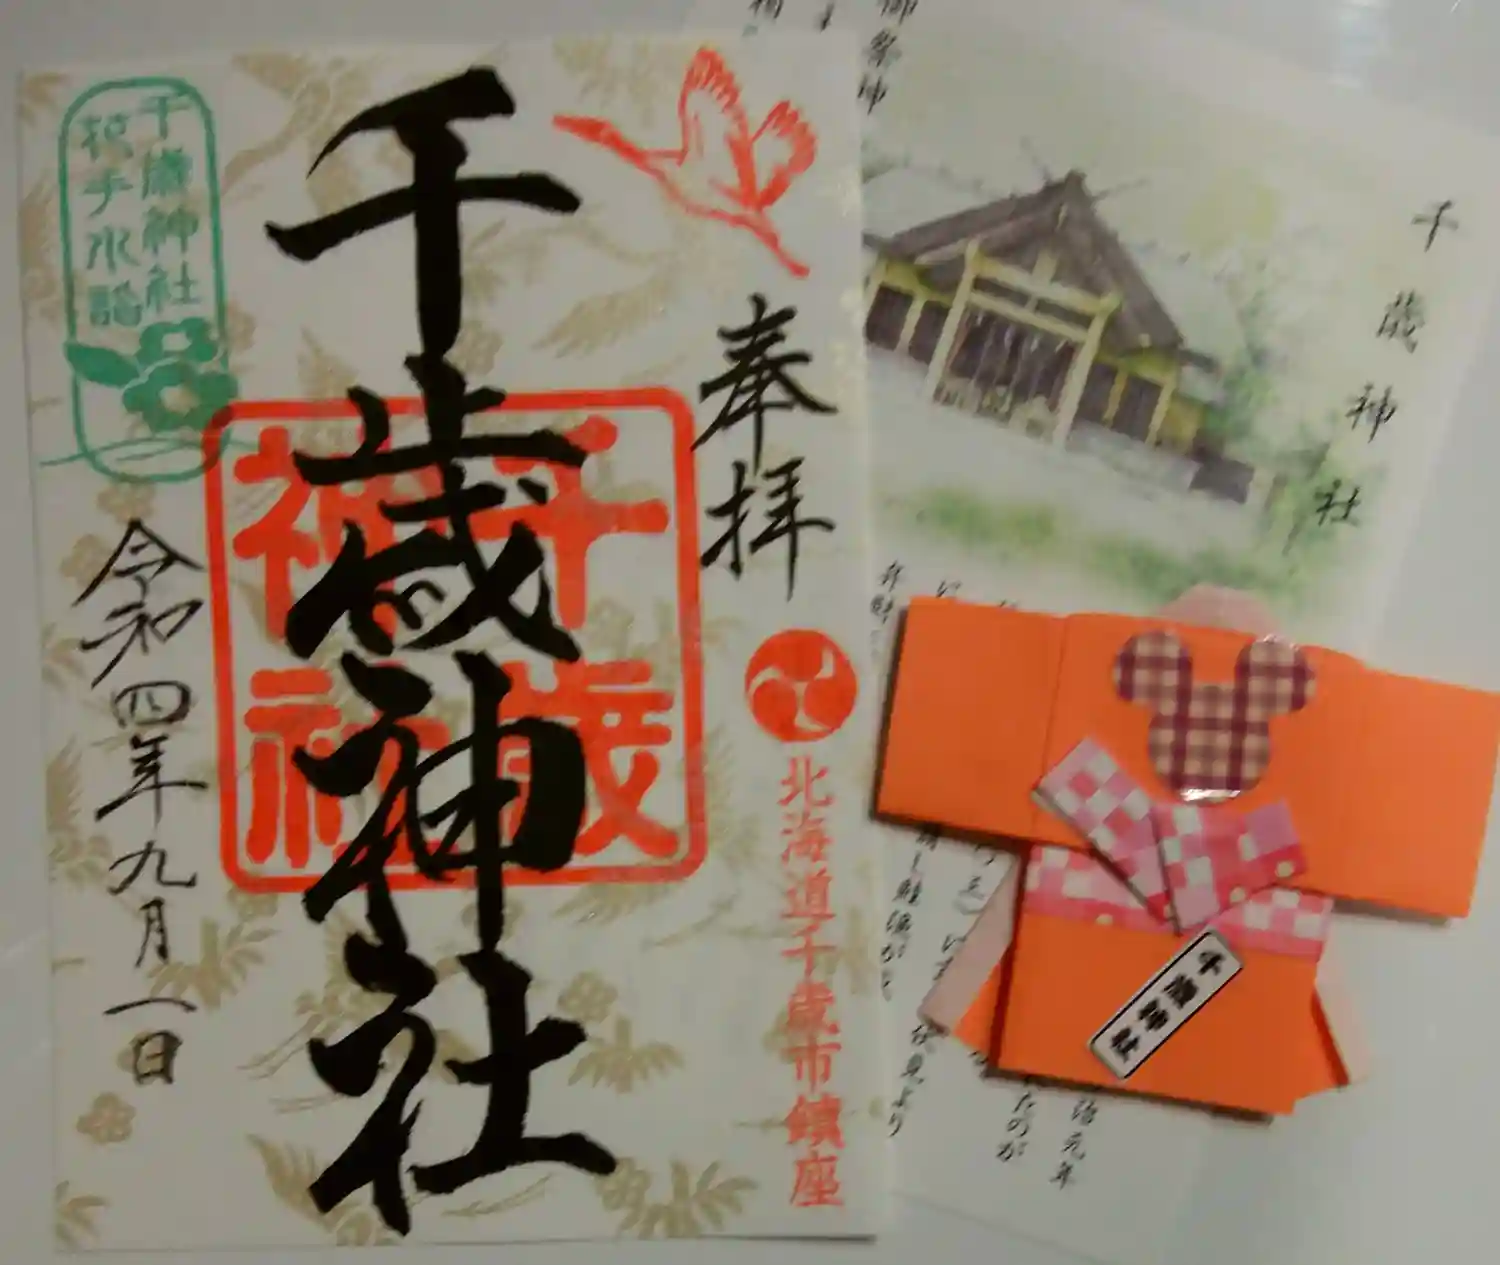 奉拝
北海道千歳市鎮座
千歳神社
千歳神社
令和四年九月一日
千歳神社
花手水詣
御祭神
千歳神社
千歳神社
治元年
たのが